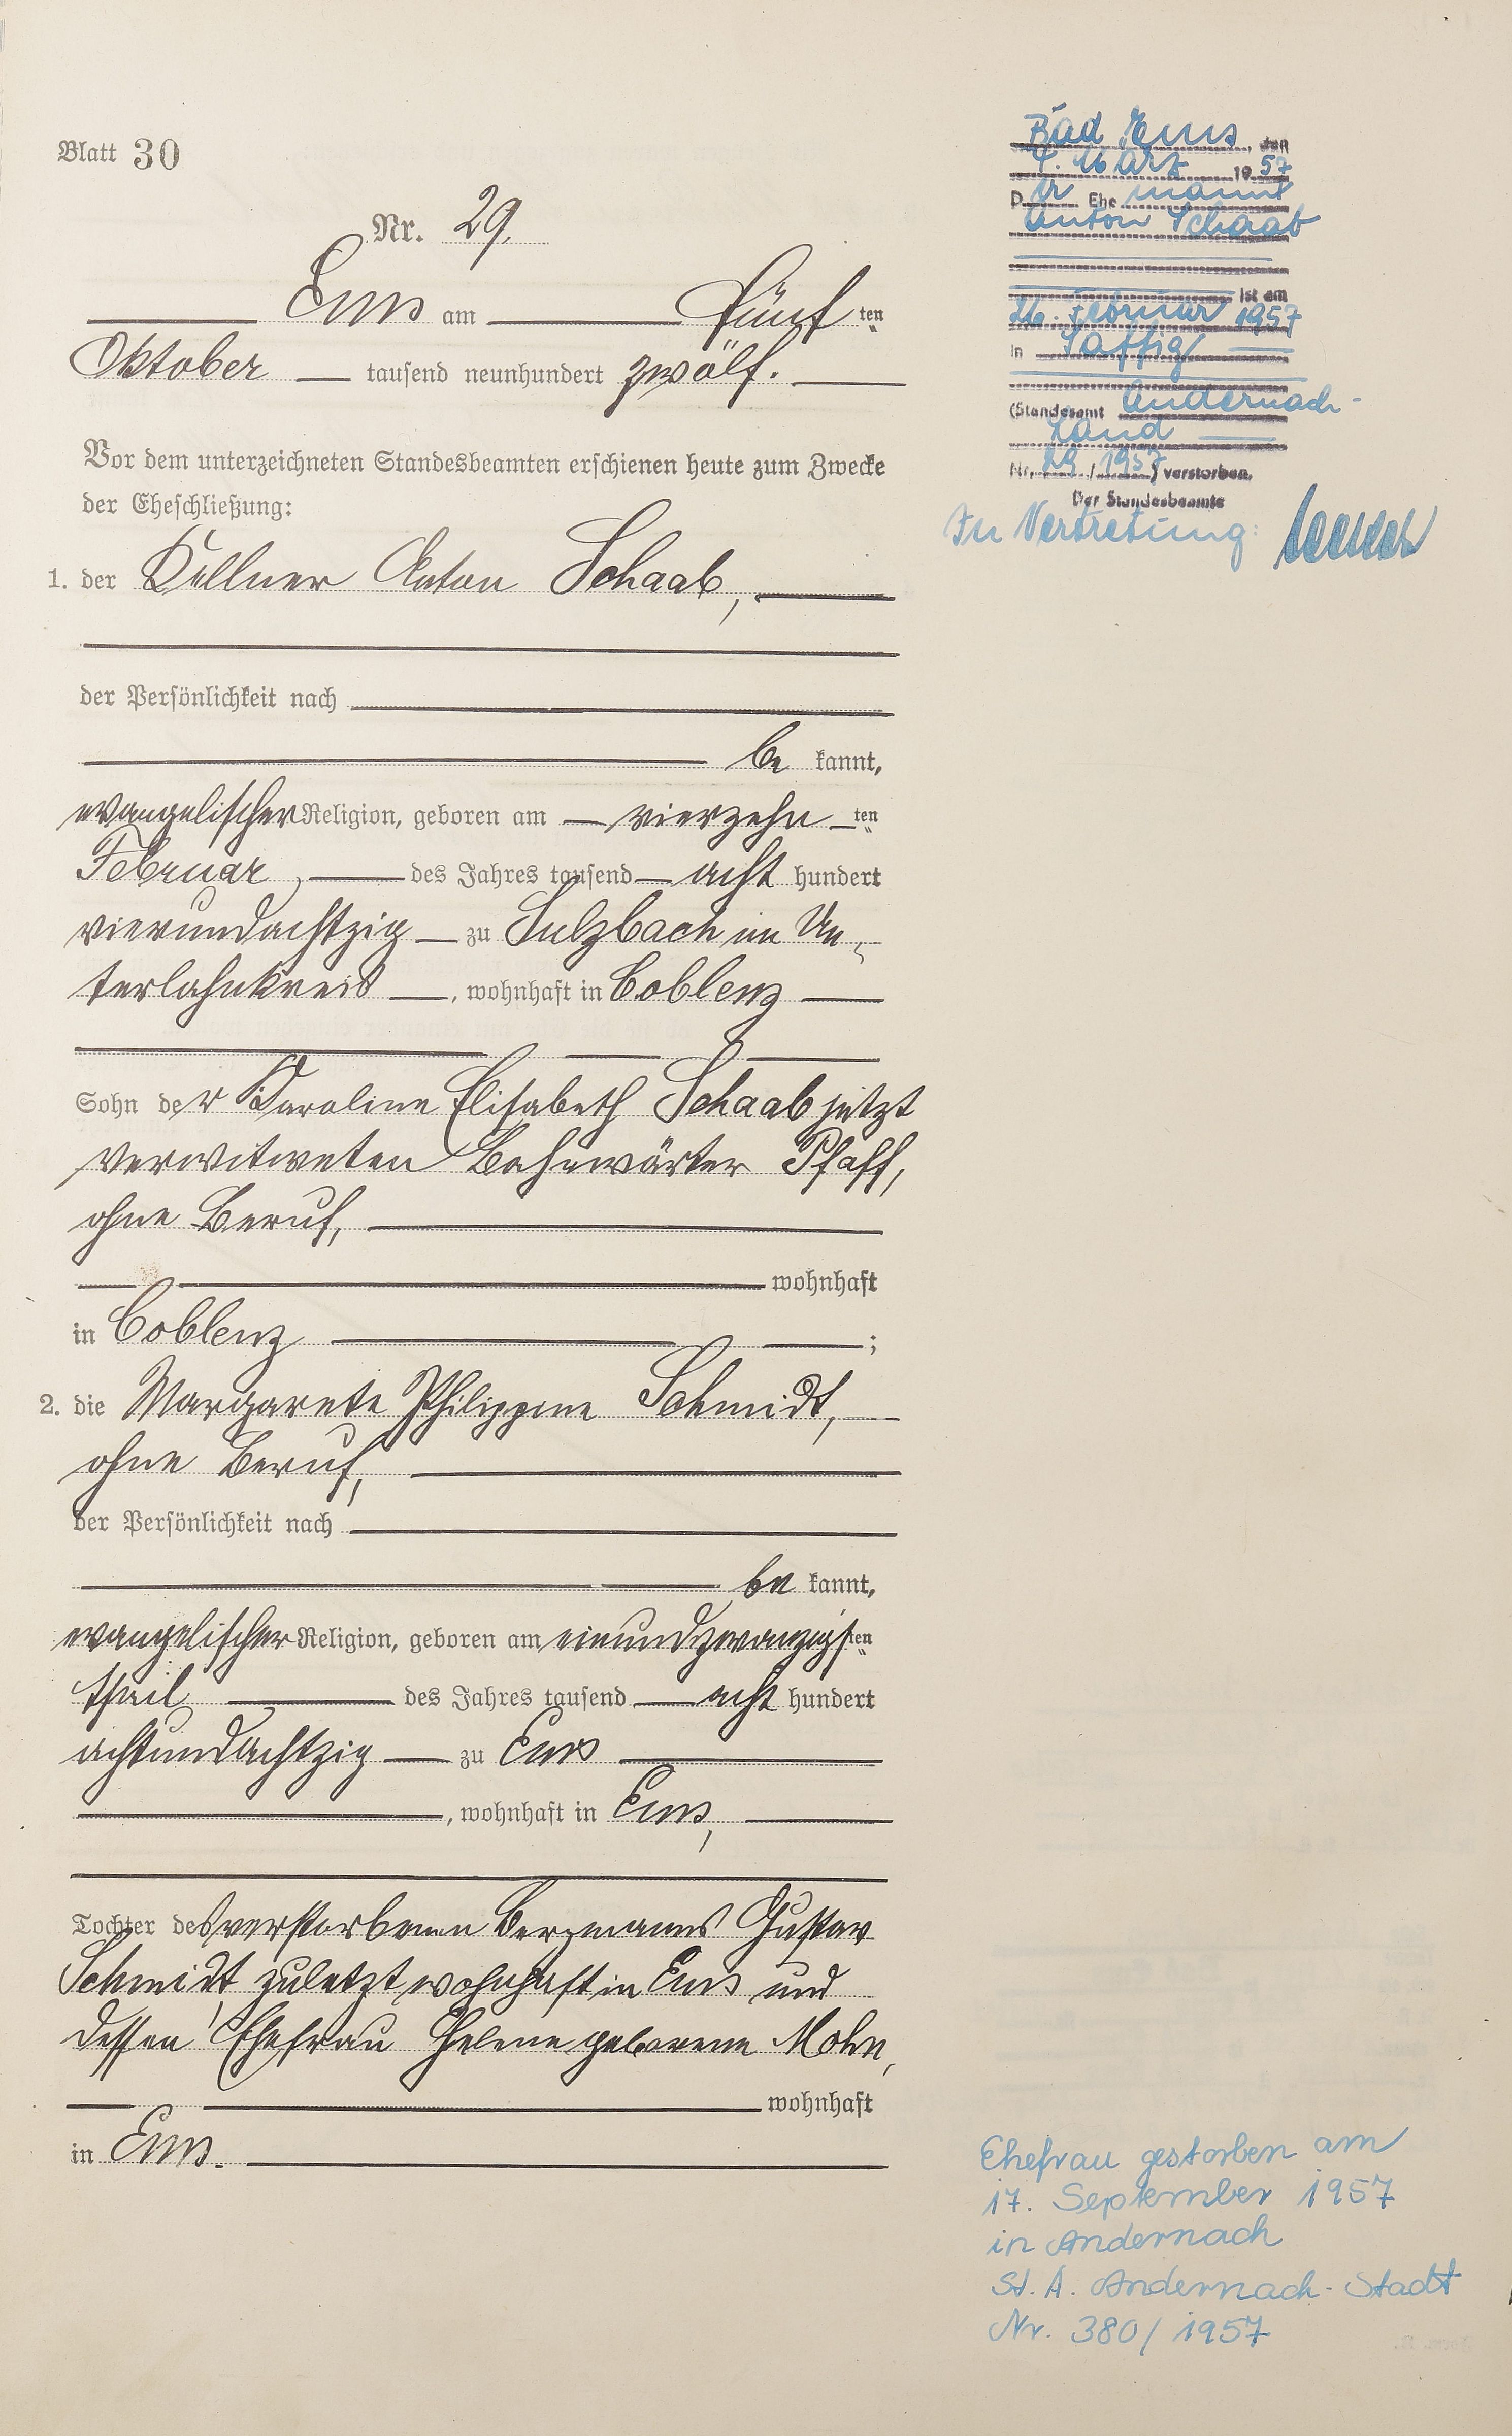 Blatt 30
Nr. 29.
Ems am fünf ten
Oktober tausend neunhundert zwölf.
Vor dem unterzeichneten Standesbeamten erschienen heute zum Zwecke
der Eheschließung:
1. der Kellner Anton Schaab,
der Persönlichkeit nach
be kannt,
evangelischer Religion, geboren am vierzehn ten
Februar des Jahres tausend acht hundert
vierundachtzig zu Sulzbach im Un-
terlahnkreis, wohnhaft in Coblenz
Sohn der Karoline Elisabeth Schaab jetzt
verwitweten Bahnwärter Pfaff,
ohne Beruf,
wohnhaft
in Coblenz ;
2. die Margarete Philippine Schmidt,
ohne Beruf,
der Persönlichkeit nach
be kannt,
evangelischer Religion, geboren am einundzwanzigsten
April des Jahres tausend acht hundert
achtundachtzig zu Ems
, wohnhaft in Ems,
Tochter des verstorbenen Bergmanns Gustav
Schmidt, zuletzt wohnhaft in Ems und
dessen Ehefrau Helene geborene Mohn,
wohnhaft
in Ems.
Bad Ems, den
4. März 1957
D er Ehe mann
Anton Schaab
ist am
26. Februar 1957
in Saffig
(Standesamt Andernach-
Land
Nr. 29/1957) verstorben.
Der Standesbeamte
In Vertretung:
Ehefrau gestorben am
17. September 1957
in Andernach
St. A. Andernach-Stadt
Nr. 380/1957